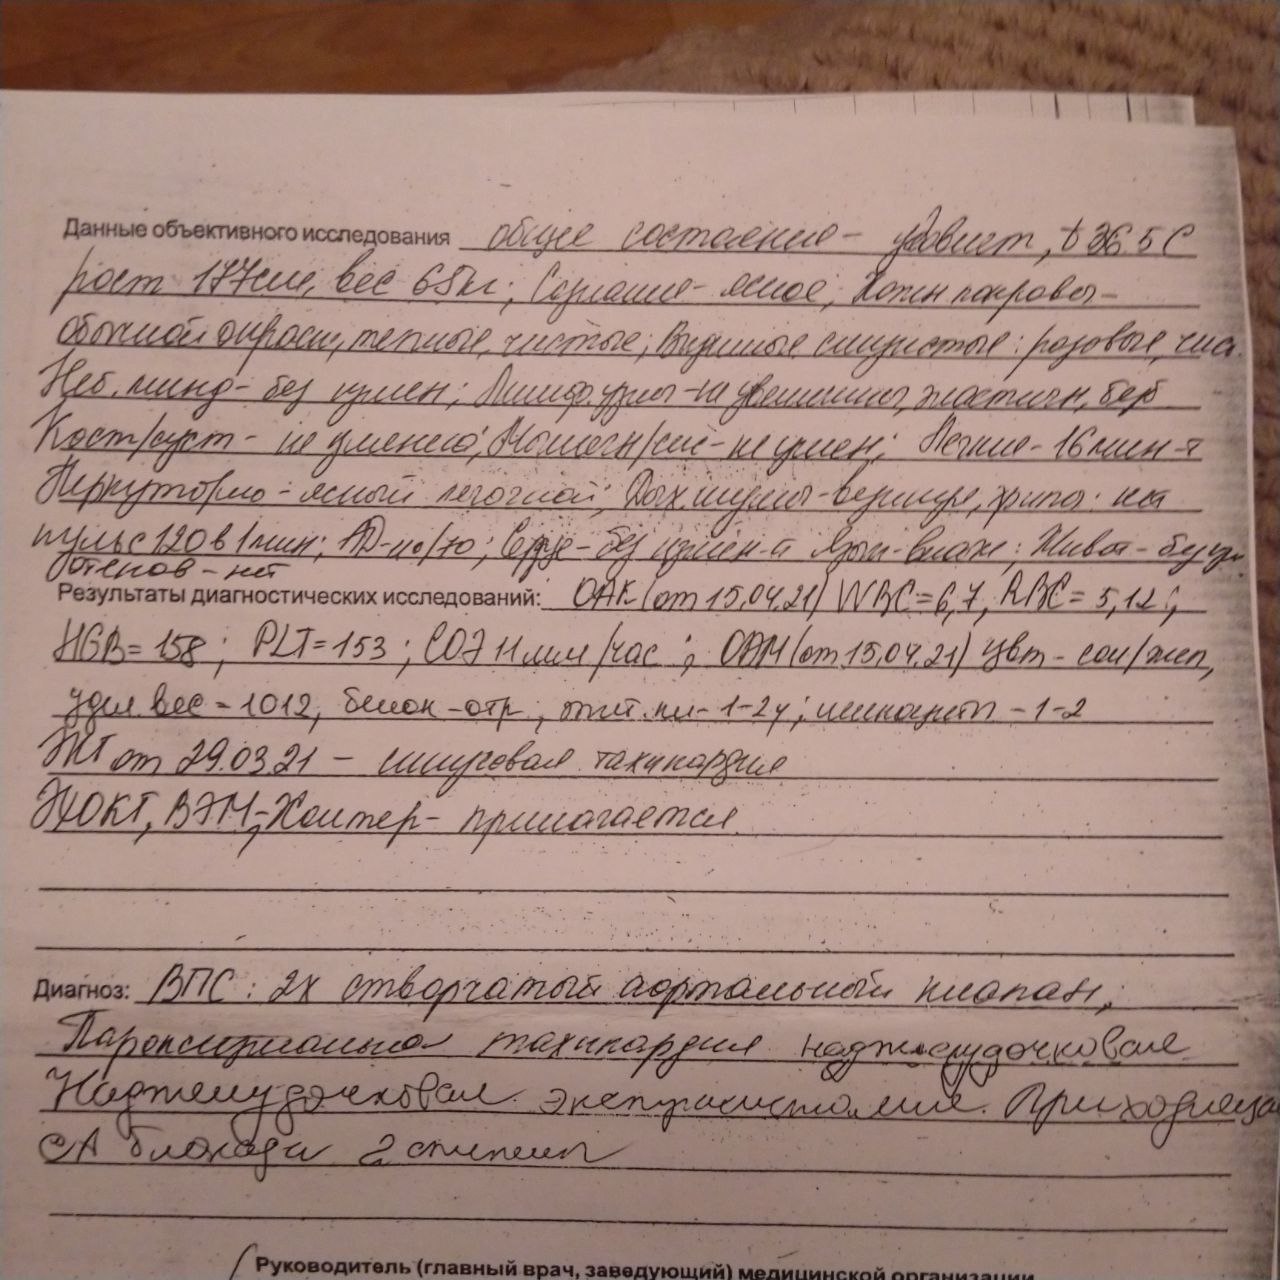 Данные объективного исследования общее состояние - удовлет, t 36.5 С
рост 177см, вес 65кг; Сознание - ясное; Кожн покровы -
обычной окраски, теплые, чистые; Видимые слизистые: розовые, чист.
Неб. минд - без измен; Лимф. узлы - не увеличены, эластичн, безб
Кост/суст - не изменены; Мышечн/сис - не измен; Легкие - 16 мин-т
Перкуторно - ясный легочной; Дых. шумы - везикуляр, хрипы: нет
пульс 120 в 1 мин; АД - 110/70; Сердце - без измен-й Язык - влажн; Живот - без из
Отеков - нет
Результаты диагностических исследований: ОАК (от 15.04.21) WBC = 6,7, RBC = 5,12;
HGB = 158; PLT = 153; СОЭ 11 мм/час; ОАМ (от 15.04.21) цвт - сол/жел,
удел. вес - 1012, белок - отр, эпит. кл - 1-2 ; лейкоциты - 1-2
ЭКГ от 29.03.21 - синусовая тахикардия
ЭХОКГ, ВЭМ, Холтер - прилагается
Диагноз: ВПС: 2х створчатый аортальный клапан,
Пароксизмальная тахикардия наджелудочковая
Наджелудочковая экстрасистолия. Приходящая
СА блокада 2 степени
Руководитель (главный врач, заведующий) медицинской организации